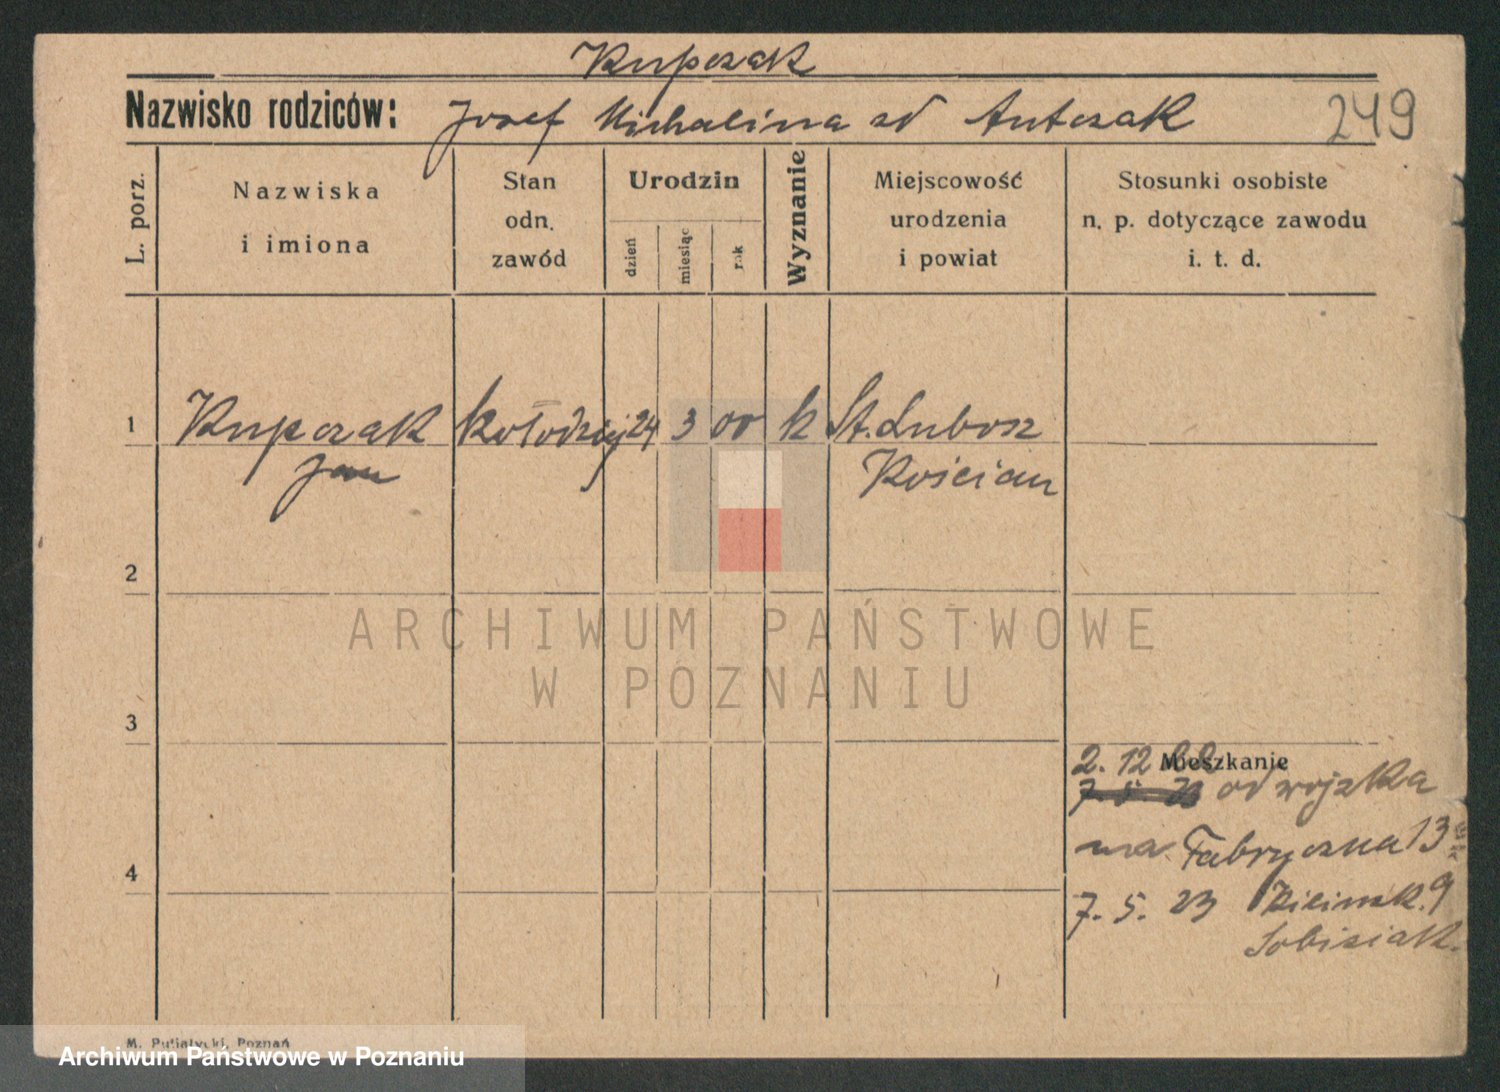 Kupczak
Nazwisko rodziców: Josef Michalina zd Antczak 249
L. porz.
Nazwiska
i imiona
Stan
odn.
zawód
Urodzin
dzień
miesiąc
rok
Wyznanie
Miejscowość
urodzenia
i powiat
Stosunki osobiste
n. p. dotyczące zawodu
i. t. d.
1 Kupczak kołodziej 24 3 00 k St. Lubosz
Jan Kościan
2
ARCHIWUM PAŃSTWOWE
W POZNANIU
3
Mieszkanie
2. 12 22
7. 5. 23 od wojska
na Fabryczna 13
4
7. 5. 23 Kilinsk. 9
Sobisiak.
M. Putiatycki, Poznań
Archiwum Państwowe w Poznaniu